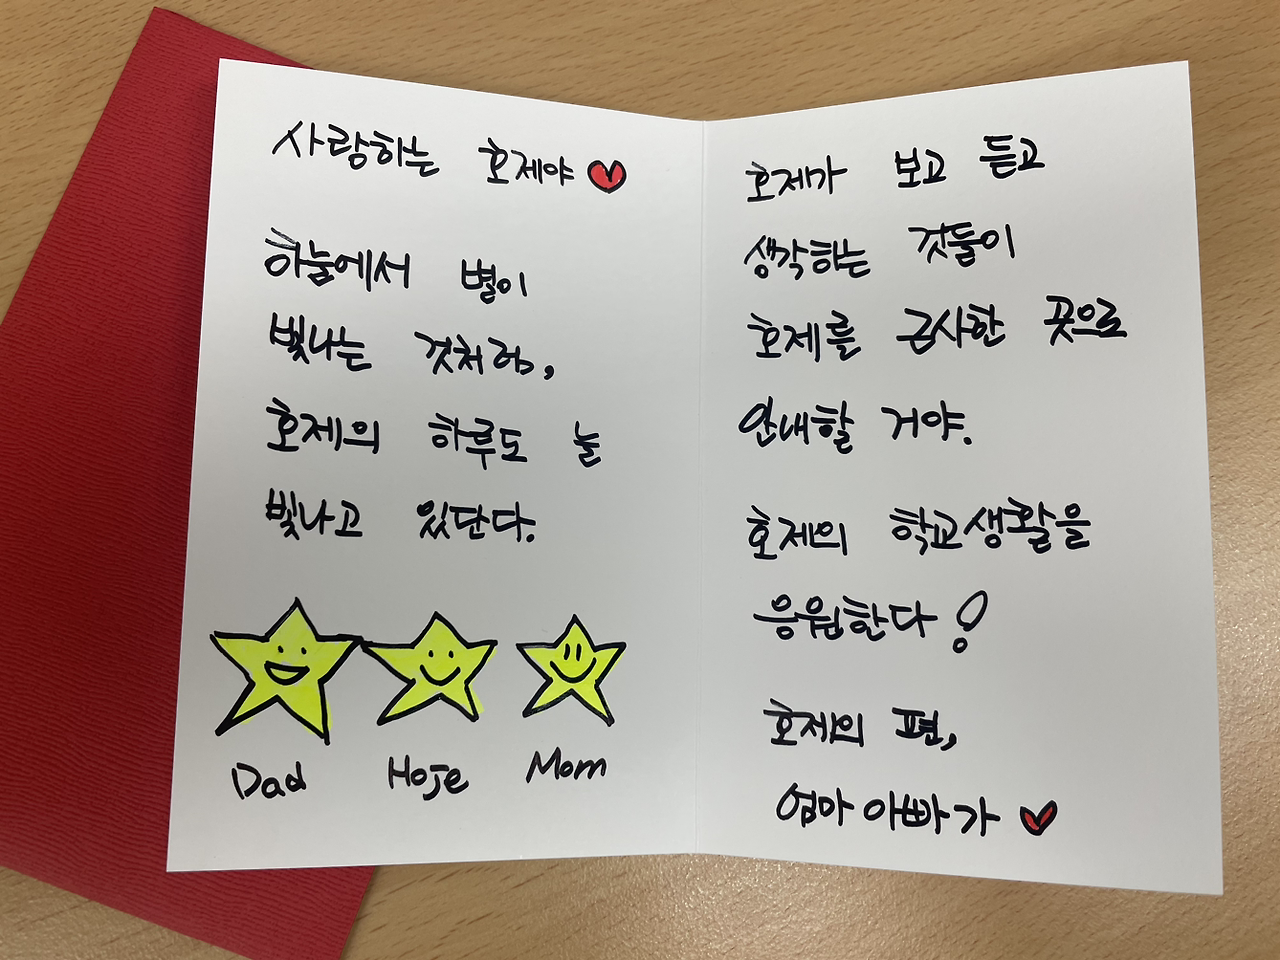 사랑하는 호제야
하늘에서 별이
빛나는 것처럼,
호제의 하루도 늘
빛나고 있단다.
Dad Hoje Mom
호제가 보고 듣고
생각하는 것들이
호제를 근사한 곳으로
안내할 거야.
호제의 학교생활을
응원한다!
호제의 편,
엄마 아빠가